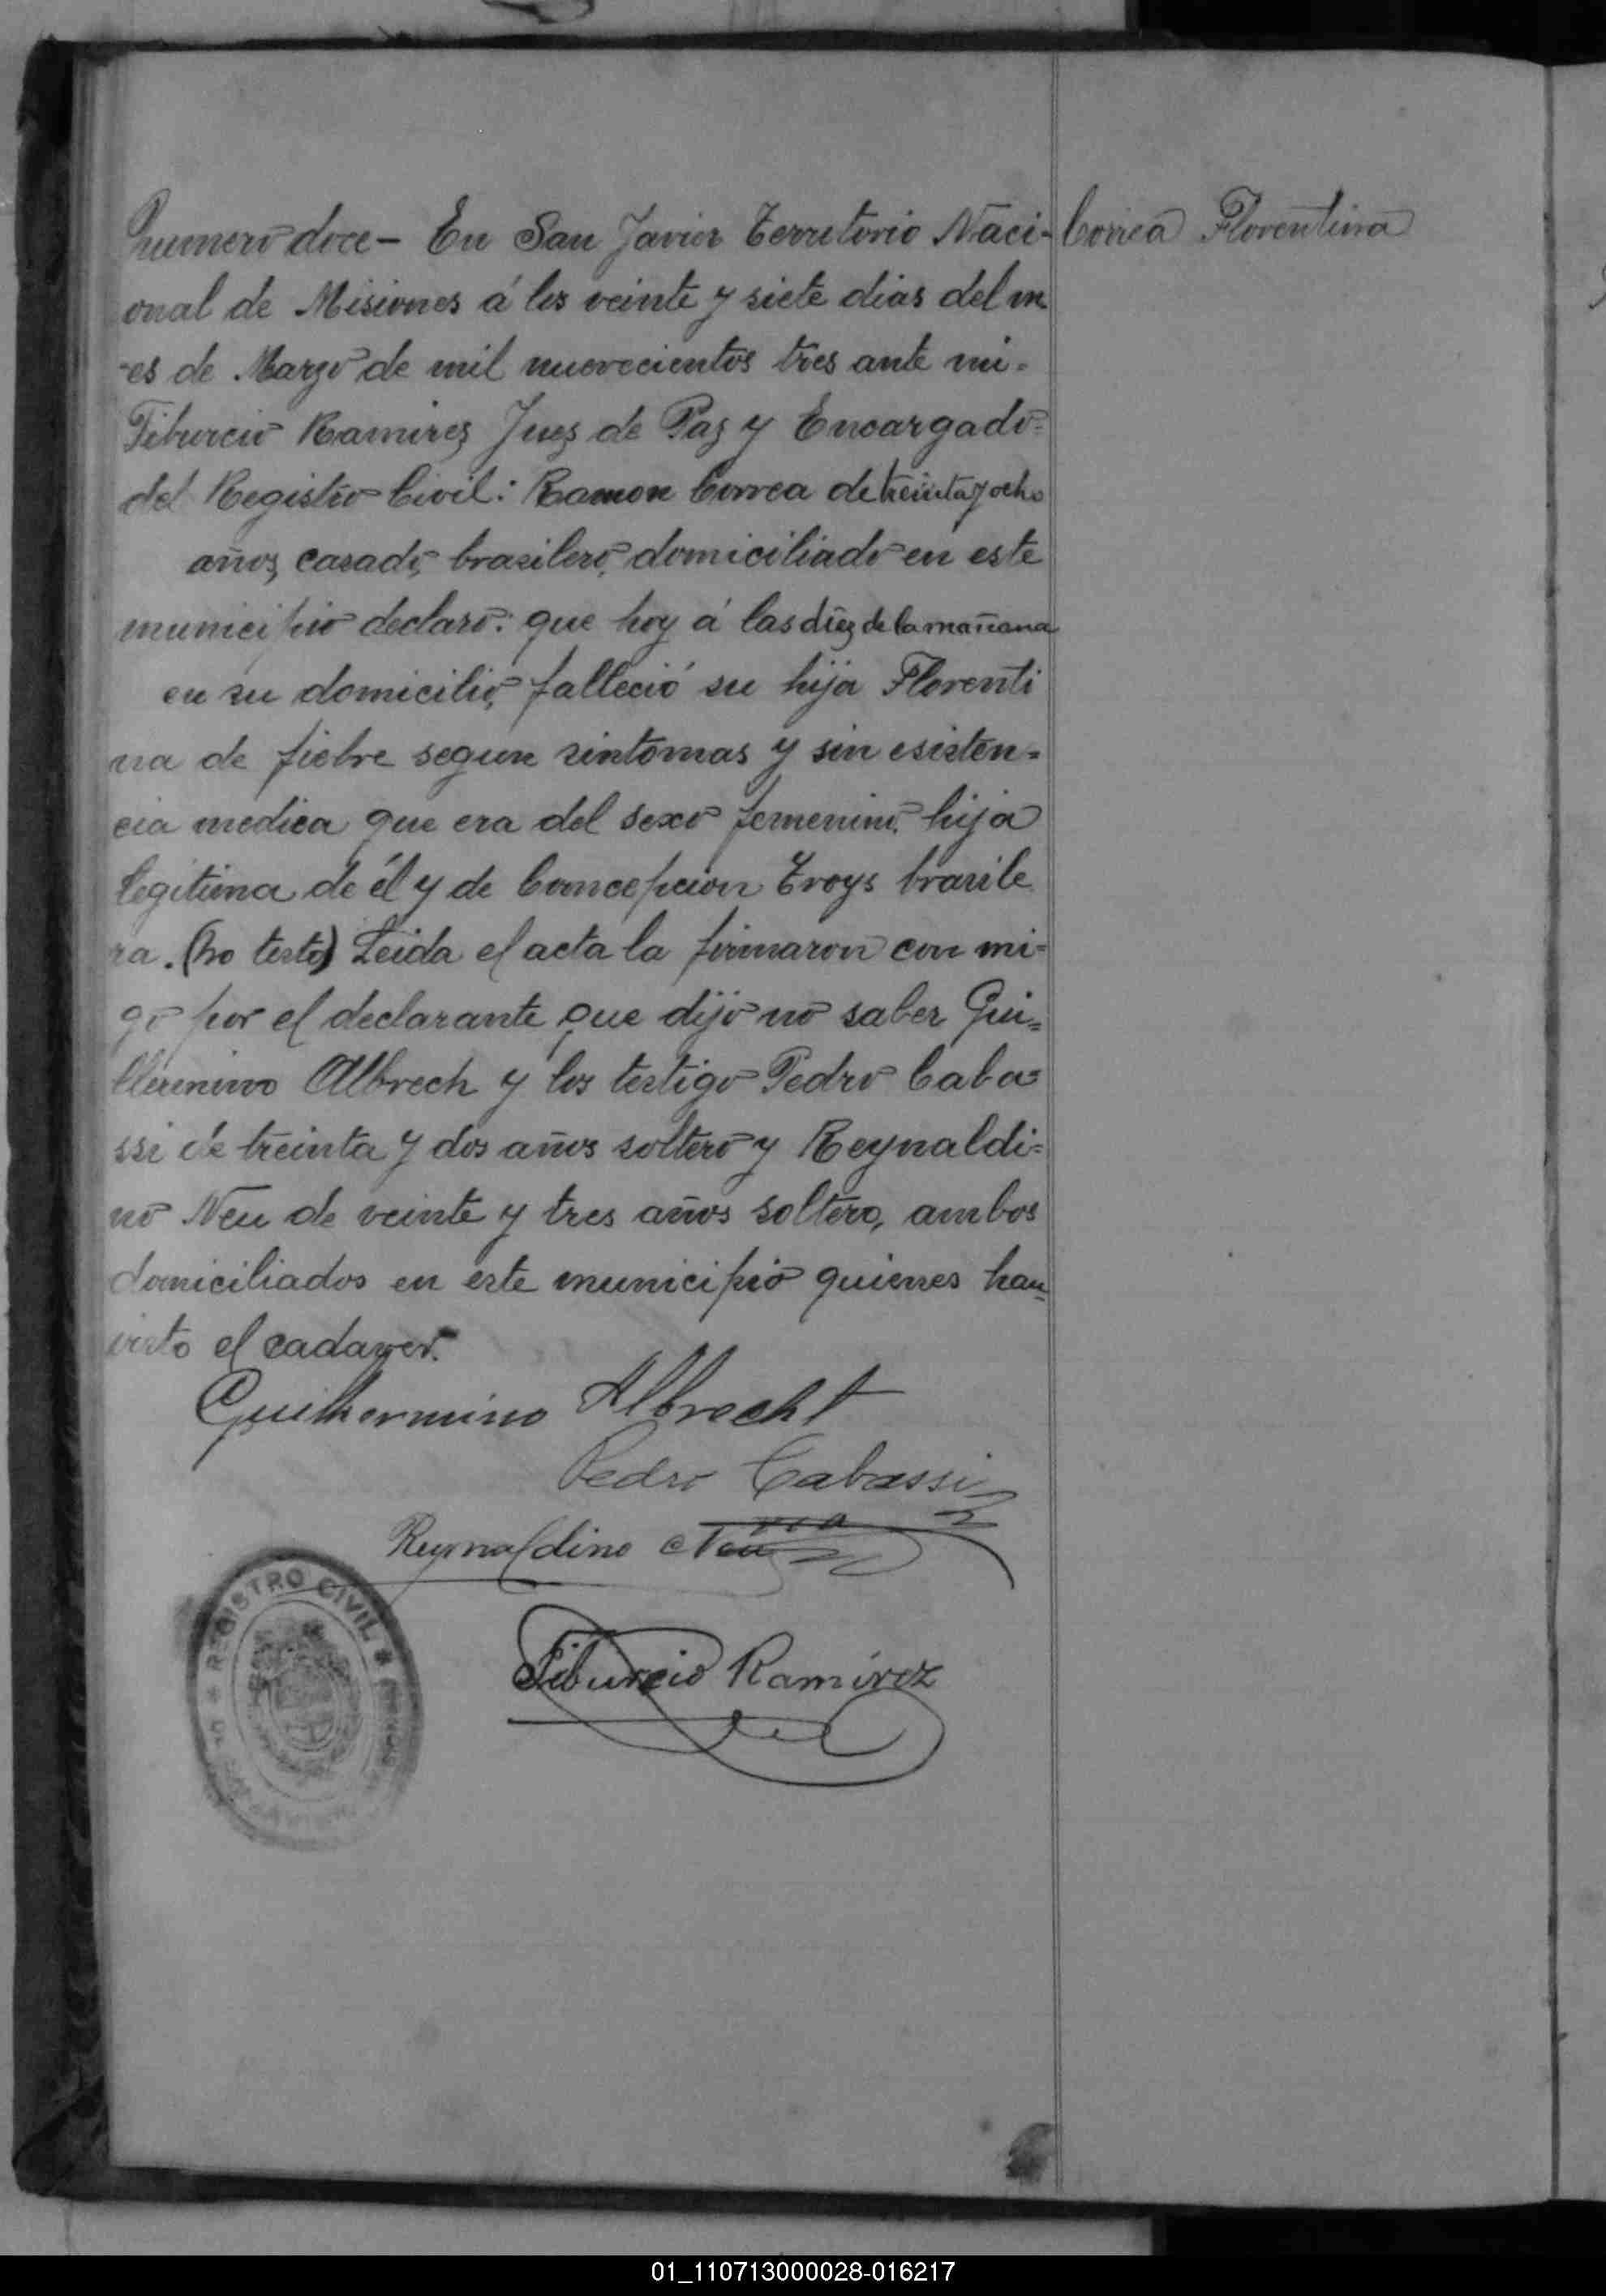 Numero doce - En San Javier Territorio Naci-
Correa Florentina
onal de Misiones á los veinte y siete dias del m
-es de Marzo de mil nuevecientos tres ante mi-
Tiburcio Ramirez Juez de Paz y Encargado-
del Registro Civil: Ramon Correa de treinta y ocho
años, casado, brasilero, domiciliado en este
municipio declaro: que hoy á las diez de la mañana
en su domicilio, falleció su hija Florenti
na de fiebre segun sintomas y sin esisten-
cia medica que era del sexo femenino, hija
legitima de él y de Concepcion Troys brasile
ra. (no testo) Leida el acta la firmaron con mi-
go por el declarante que dijo no saber Gui-
llermino Albrech y los testigo Pedro Caba-
ssi de treinta y dos años soltero y Reynaldi-
no Neu de veinte y tres años soltero, ambos
domiciliados en este municipio quienes han
visto el cadaver.
Guilhermino Albrecht
Pedro Cabassi
Reynaldino Neu
REGISTRO CIVIL
SAN JAVIER
Tiburcio Ramirez
01_110713000028-016217